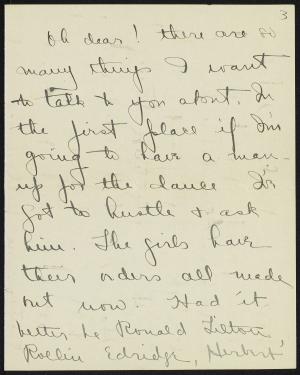 3
Oh dear! there are so
many things I want
to talk to you about. In
the first place if I'm
going to have a man
up for the dance I've
got to hustle & ask
him. The girls have
their orders all made
out now. Had it
better be Ronald Tilton
Rollin Edridge, Herbert